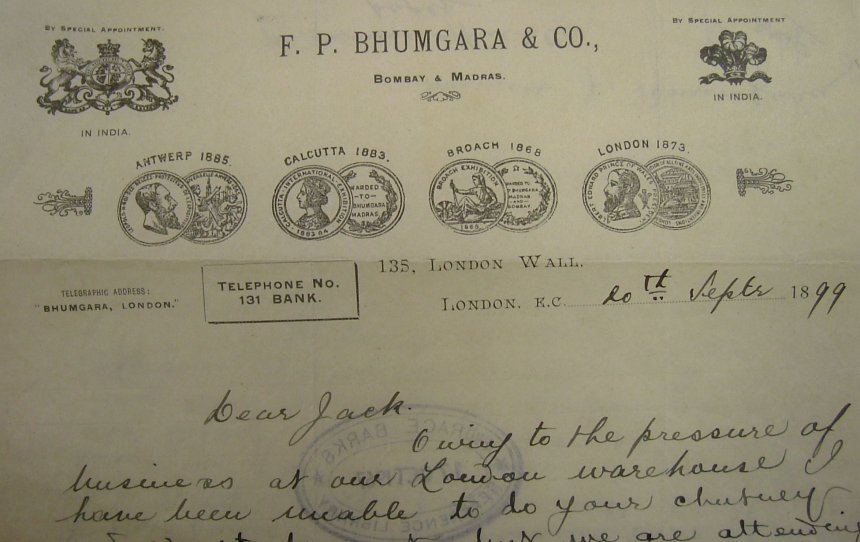 By Special Appointment.
IN INDIA.
F. P. BHUMGARA & CO.,
Bombay & Madras.
By Special Appointment
IN INDIA.
ANTWERP 1885.
CALCUTTA 1883.
CALCUTTA INTERNATIONAL EXHIBITION
1883-84
AWARDED
—TO—
BHUMGARA
MADRAS
BROACH 1868
BROACH EXHIBITION
1868
LONDON 1873.
ALBERT EDWARD PRINCE OF WALES
TELEGRAPHIC ADDRESS:
"BHUMGARA, LONDON."
TELEPHONE No.
131 BANK.
135, London Wall.
London, E.C. 20th Septr 1899
Dear Jack.
Owing to the pressure of
business at our London warehouse I
have been unable to do your chutney
but we are attending